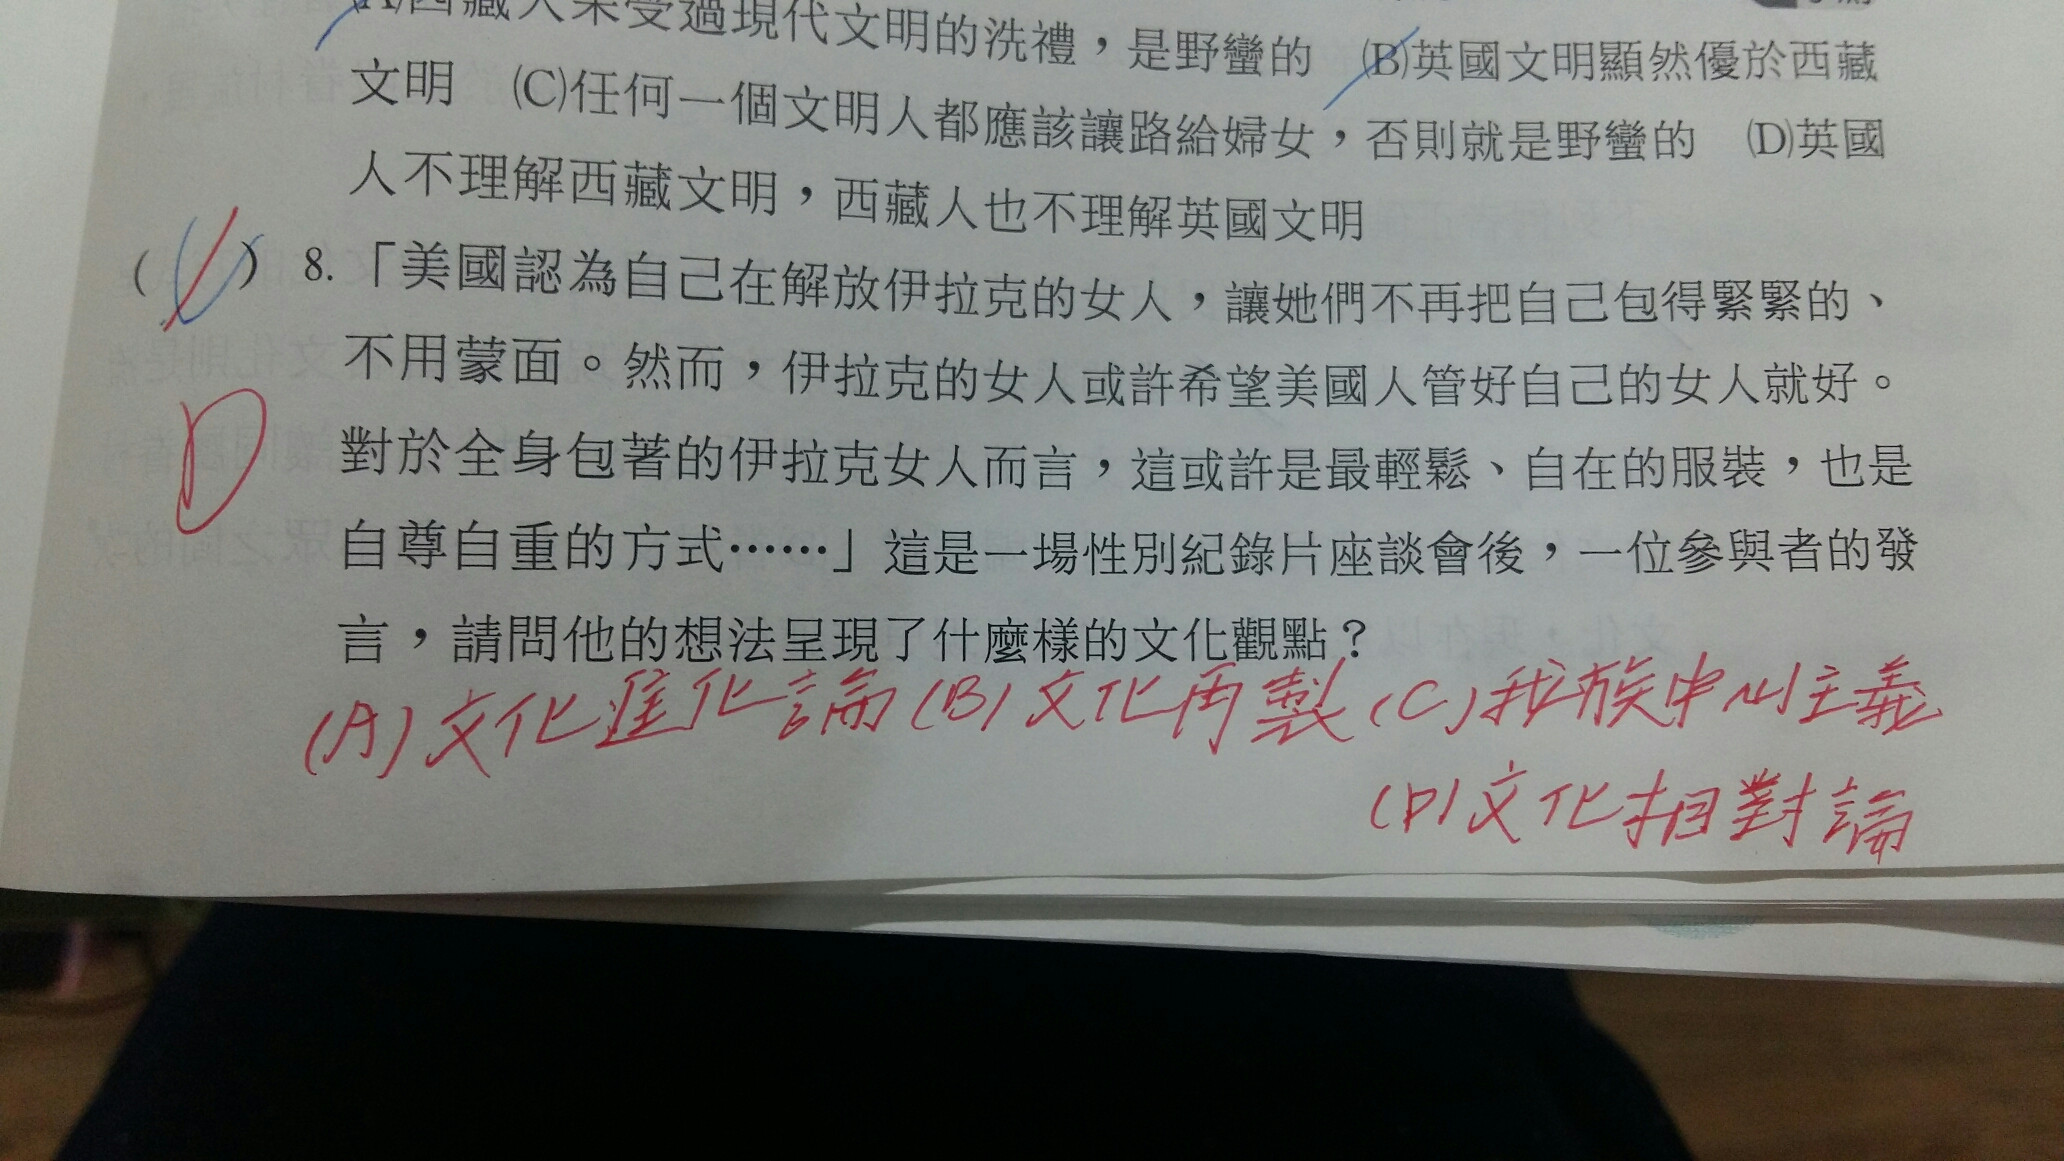 西藏人未受過現代文明的洗禮，是野蠻的　(B)英國文明顯然優於西藏
文明　(C)任何一個文明人都應該讓路給婦女，否則就是野蠻的　(D)英國
人不理解西藏文明，西藏人也不理解英國文明
(　) 8.「美國認為自己在解放伊拉克的女人，讓她們不再把自己包得緊緊的、
不用蒙面。然而，伊拉克的女人或許希望美國人管好自己的女人就好。
D
對於全身包著的伊拉克女人而言，這或許是最輕鬆、自在的服裝，也是
自尊自重的方式……」這是一場性別紀錄片座談會後，一位參與者的發
言，請問他的想法呈現了什麼樣的文化觀點？
(A)文化進化論(B)文化再製(C)我族中心主義
(D)文化相對論